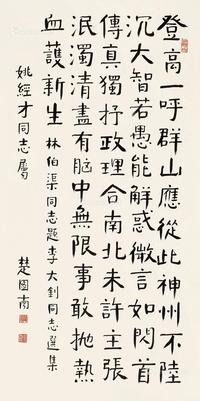 登高一呼群山應從此神州不陸
沉大智若愚能解惑微言如閃首
傳真獨抒政理合南北未許主張
泯濁清盡有腦中無限事敢抛熱
血護新生 林伯渠同志題李大釗同志選集
姚經才同志屬
楚圖南